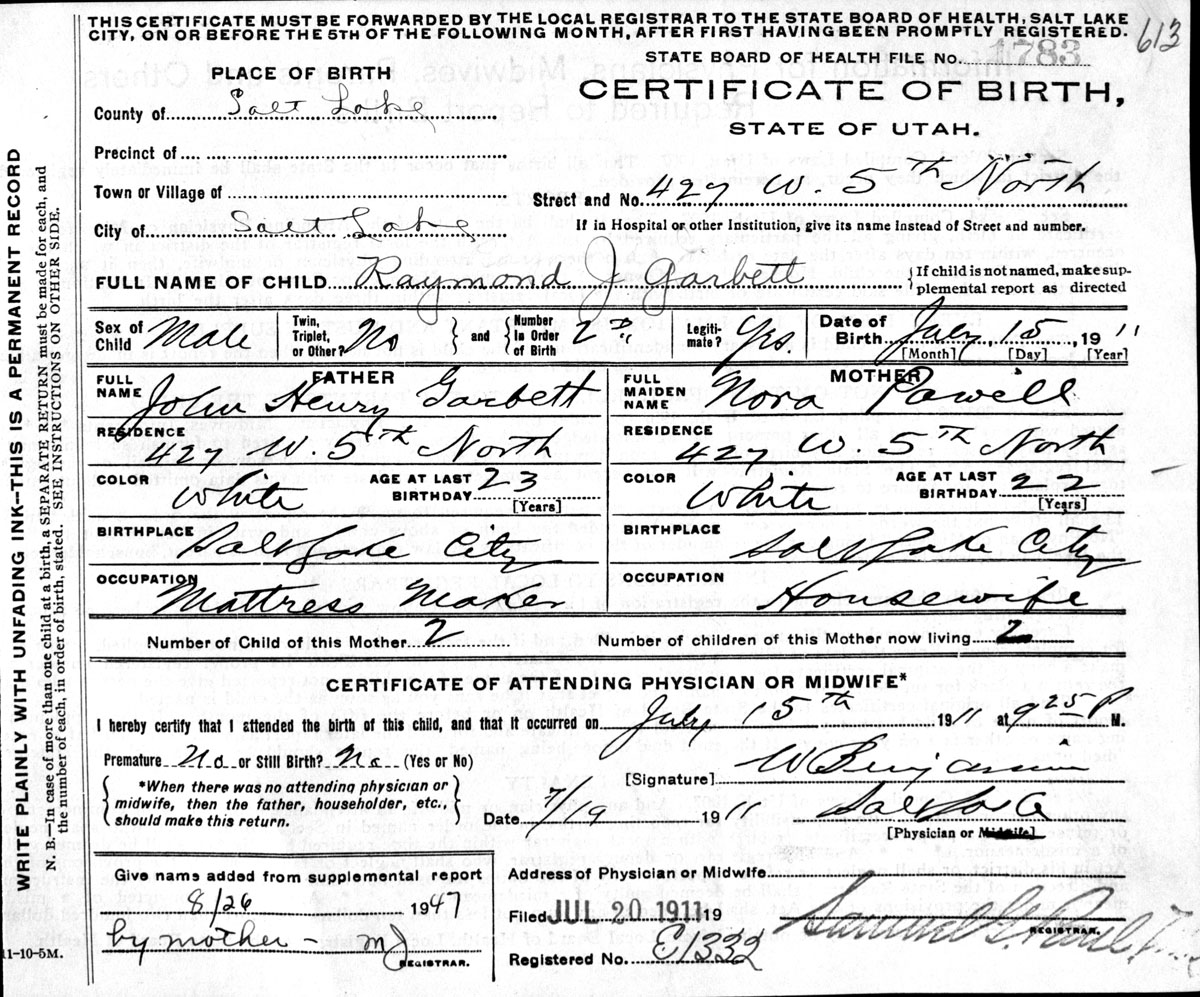 THIS CERTIFICATE MUST BE FORWARDED BY THE LOCAL REGISTRAR TO THE STATE BOARD OF HEALTH, SALT LAKE
CITY, ON OR BEFORE THE 5TH OF THE FOLLOWING MONTH, AFTER FIRST HAVING BEEN PROMPTLY REGISTERED.
613
STATE BOARD OF HEALTH FILE NO. 1783
PLACE OF BIRTH
CERTIFICATE OF BIRTH,
STATE OF UTAH.
County of Salt Lake
Precinct of
Town or Village of
Street and No. 427 W. 5th North
City of Salt Lake
If in Hospital or other Institution, give its name Instead of Street and number.
FULL NAME OF CHILD Raymond J Garbett
If child is not named, make sup-
plemental report as directed
Sex of Child Male
Twin, Triplet, or Other? No
and
Number In Order of Birth 2nd
Legiti-mate? Yes.
Date of Birth July 15, 1911
[Month] [Day] [Year]
FATHER
FULL NAME John Henry Garbett
MOTHER
FULL MAIDEN NAME Nora Powell
RESIDENCE 427 W. 5th North
RESIDENCE 427 W. 5th North
COLOR White AGE AT LAST BIRTHDAY 23 [Years]
COLOR White AGE AT LAST BIRTHDAY 22 [Years]
BIRTHPLACE Salt Lake City
BIRTHPLACE Salt Lake City
OCCUPATION Mattress Maker
OCCUPATION Housewife
Number of Child of this Mother 2
Number of children of this Mother now living 2
CERTIFICATE OF ATTENDING PHYSICIAN OR MIDWIFE*
I hereby certify that I attended the birth of this child, and that it occurred on July 15th 1911 at 9 25 P M.
Premature No or Still Birth? No (Yes or No)
[Signature] W Benjamin
*When there was no attending physician or
midwife, then the father, householder, etc.,
should make this return.
Date 7/19 1911
[Physician or Midwife]
Give name added from supplemental report
8/26 1947
by mother - mJ
REGISTRAR.
Address of Physician or Midwife
Filed JUL 20 1911 19
REGISTRAR.
Registered No. E1332
11-10-5M.
WRITE PLAINLY WITH UNFADING INK--THIS IS A PERMANENT RECORD
N. B.—In case of more than one child at a birth, a SEPARATE RETURN must be made for each, and
the number of each, in order of birth, stated. SEE INSTRUCTIONS ON OTHER SIDE.